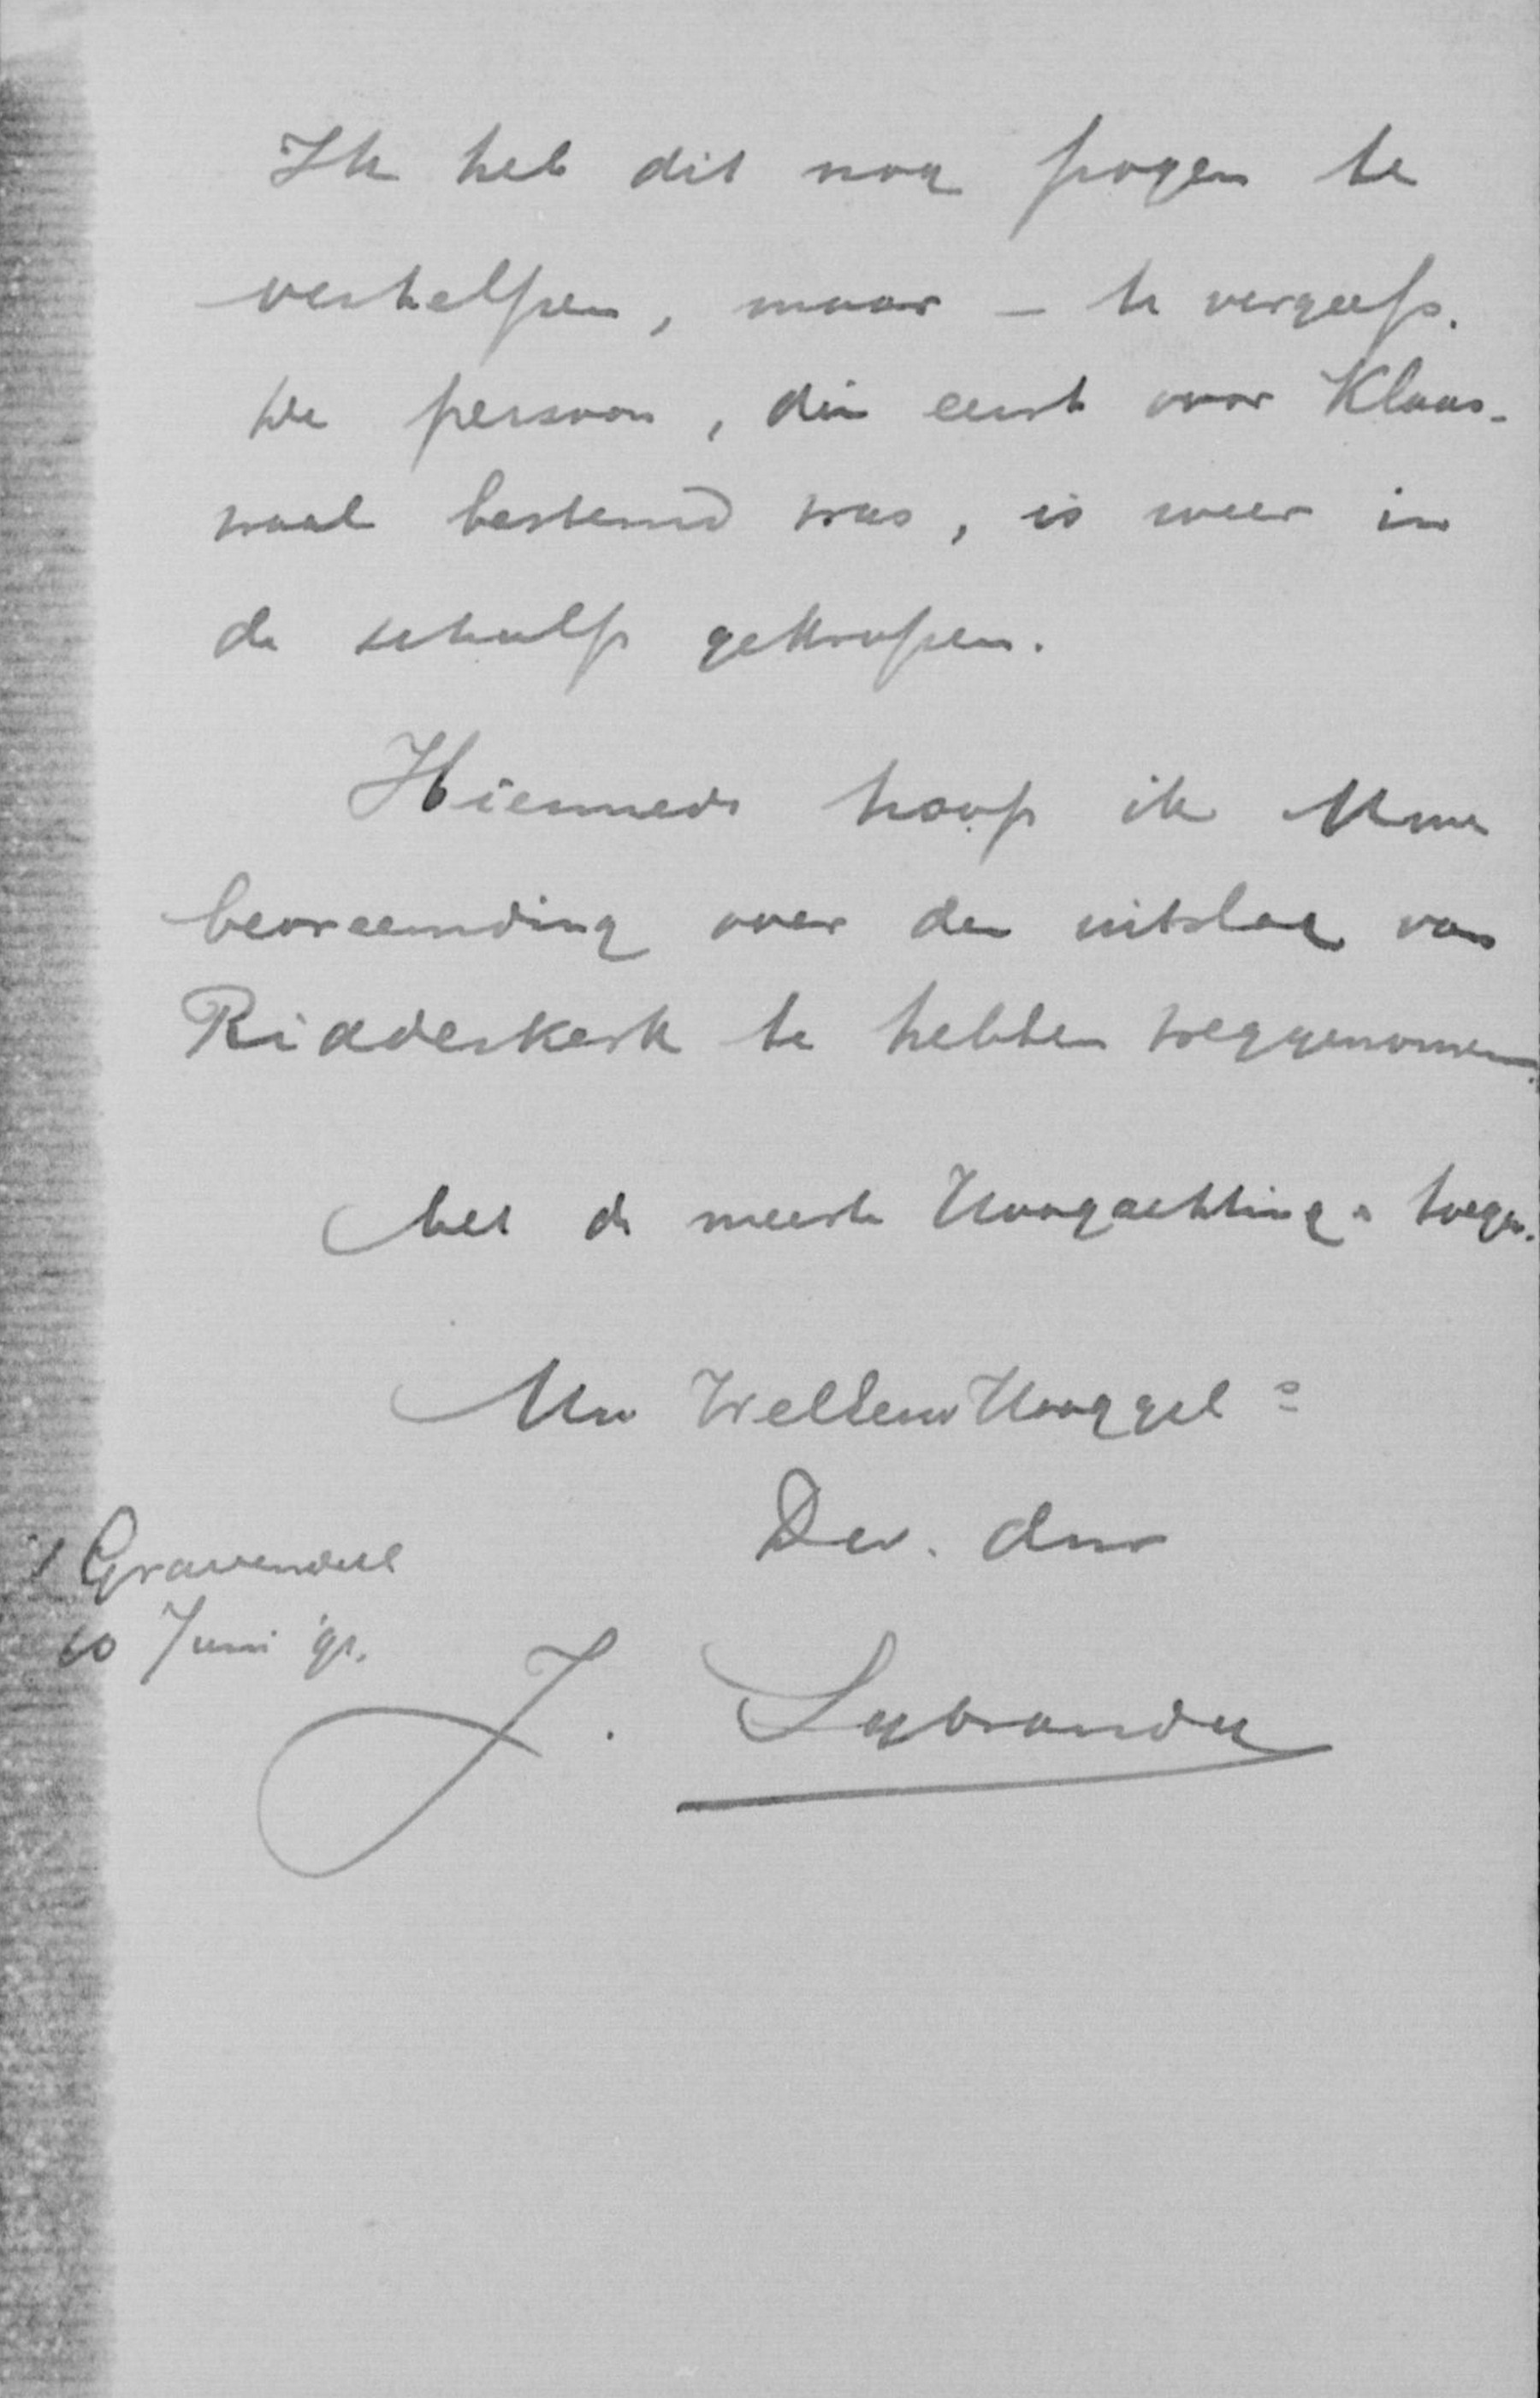 Ik heb dit nog pogen te
verhelpen, maar – te vergeefs.
De persoon, die eerst voor Klaas-
waal bestemd was, is weer in
de schulp gekropen.
Hiermede hoop ik Uwe
bevreemding over den uitslag van
Ridderkerk te hebben weggenomen.
Met de meeste Hoogachting
Uw WelEerw Hooggel
Dw. dnr
's Gravendeel
10 Juni '91.
J. Sybrandy